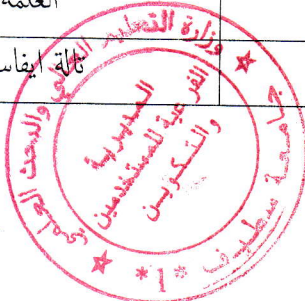 العلمة
تالة ايفاسن
وزارة التعليم العالي والبحث العلمي
جامعة سطيف *1*
المديرية
الفرعية للمستخدمين
والتكوين